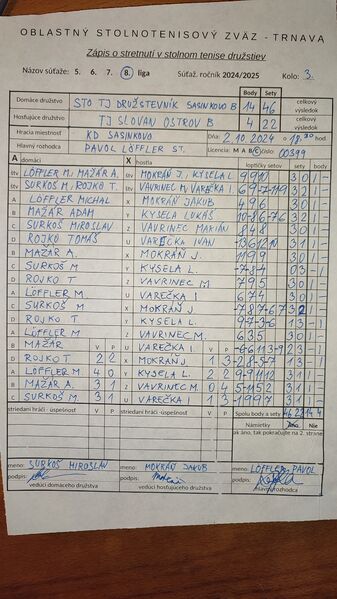 OBLASTNÝ STOLNOTENISOVÝ ZVÄZ - TRNAVA
Zápis o stretnutí v stolnom tenise družstiev
Názov súťaže: 5. 6. 7. 8. liga Súťaž. ročník 2024/2025 Kolo: 3.
Body Sety
Domáce družstvo STO TJ DRUŽSTEVNÍK SASINKOVO B 14 46 celkový výsledok
Hosťujúce družstvo TJ SLOVAN OSTROV B 4 22 celkový výsledok
Hracia miestnosť KD SASINKOVO Dňa: 2.10.2024 o hod.
Hlavný rozhodca PAVOL LÖFFLER ST. Licencia M A B C č. 00399
A domáci X hostia loptičky setov sety body
štv LÖFFLER M. MAŽÁR A. štv MOKRÁŇ J, KYSELA L 9 9 10 3 0 1 -
štv SURKOŠ M, ROJKO T. štv VAVRINEC M, VAREČKA I.
A LÖFFLER MICHAL X MOKRÁŇ JAKUB 4 9 6 3 0 1 -
B MAŽÁR ADAM Y KYSELA LUKÁŠ 10 -8 6 -7 6 3 2 1 -
C SURKOŠ MIROSLAV Z VAVRINEC MARIÁN 8 4 8 3 0 1 -
D ROJKO TOMÁŠ U VAREČKA IVAN
B MAŽÁR A. X MOKRÁŇ J. 3 0 1 -
C SURKOŠ M Y KYSELA L. -7 -8 -4 0 3 - 1
D ROJKO T Z VAVRINEC M 7 9 5 3 0 1 -
A LÖFFLER M U VAREČKA I 6 7 4 3 0 1 -
C SURKOŠ M X MOKRÁŇ J
D ROJKO T Y KYSELA L. 1 3 - 1
A LÖFFLER M Z VAVRINEC M. 6 3 5 3 0 1 -
B MAŽÁR V P U VAREČKA I V P 2 3 - 1
D ROJKO T 2 2 X MOKRÁŇ J 1 3
A LÖFFLER M 4 0 Y KYSELA L 2 2 3 1 1 -
B MAŽÁR A. 3 1 Z VAVRINEC M 0 4 3 1 1 -
C SURKOŠ M. 3 1 U VAREČKA I 1 3 3 1 1 -
striedaní hráči - úspešnosť V P striedaní hráči -úspešnosť V P Spolu body a sety 46 22 14 4
Námietky Áno Nie
ak áno, tak pokračujte na 2. strane
meno: SURKOŠ MIROSLAV meno: MOKRÁŇ JAKUB meno: LÖFFLER PAVOL
podpis: podpis: podpis:
vedúci domáceho družstva vedúci hosťujúceho družstva hlavný rozhodca